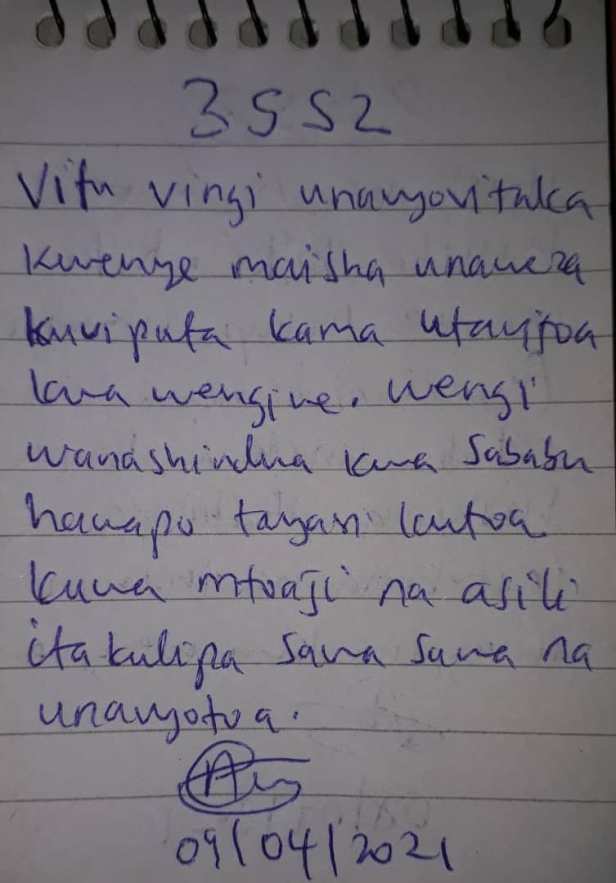 3552
Vitu vingi unavyovitaka
kwenye maisha unaweza
kuvipata kama utavitoa
kwa wengine. Wengi
wanashindwa kwa sababu
hawapo tayari kutoa
kuwa mtoaji na asili
itakulipa sawa sawa na
unavyotoa.
09/04/2021